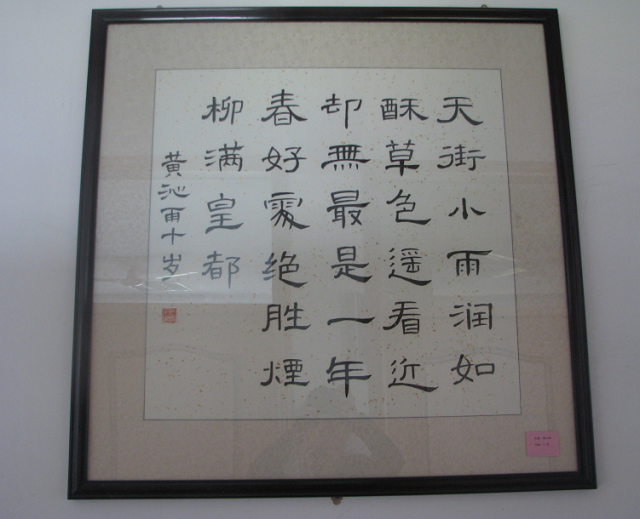 天街小雨润如
酥草色遥看近
却無最是一年
春好處绝胜煙
柳满皇都
黄沁雨十岁